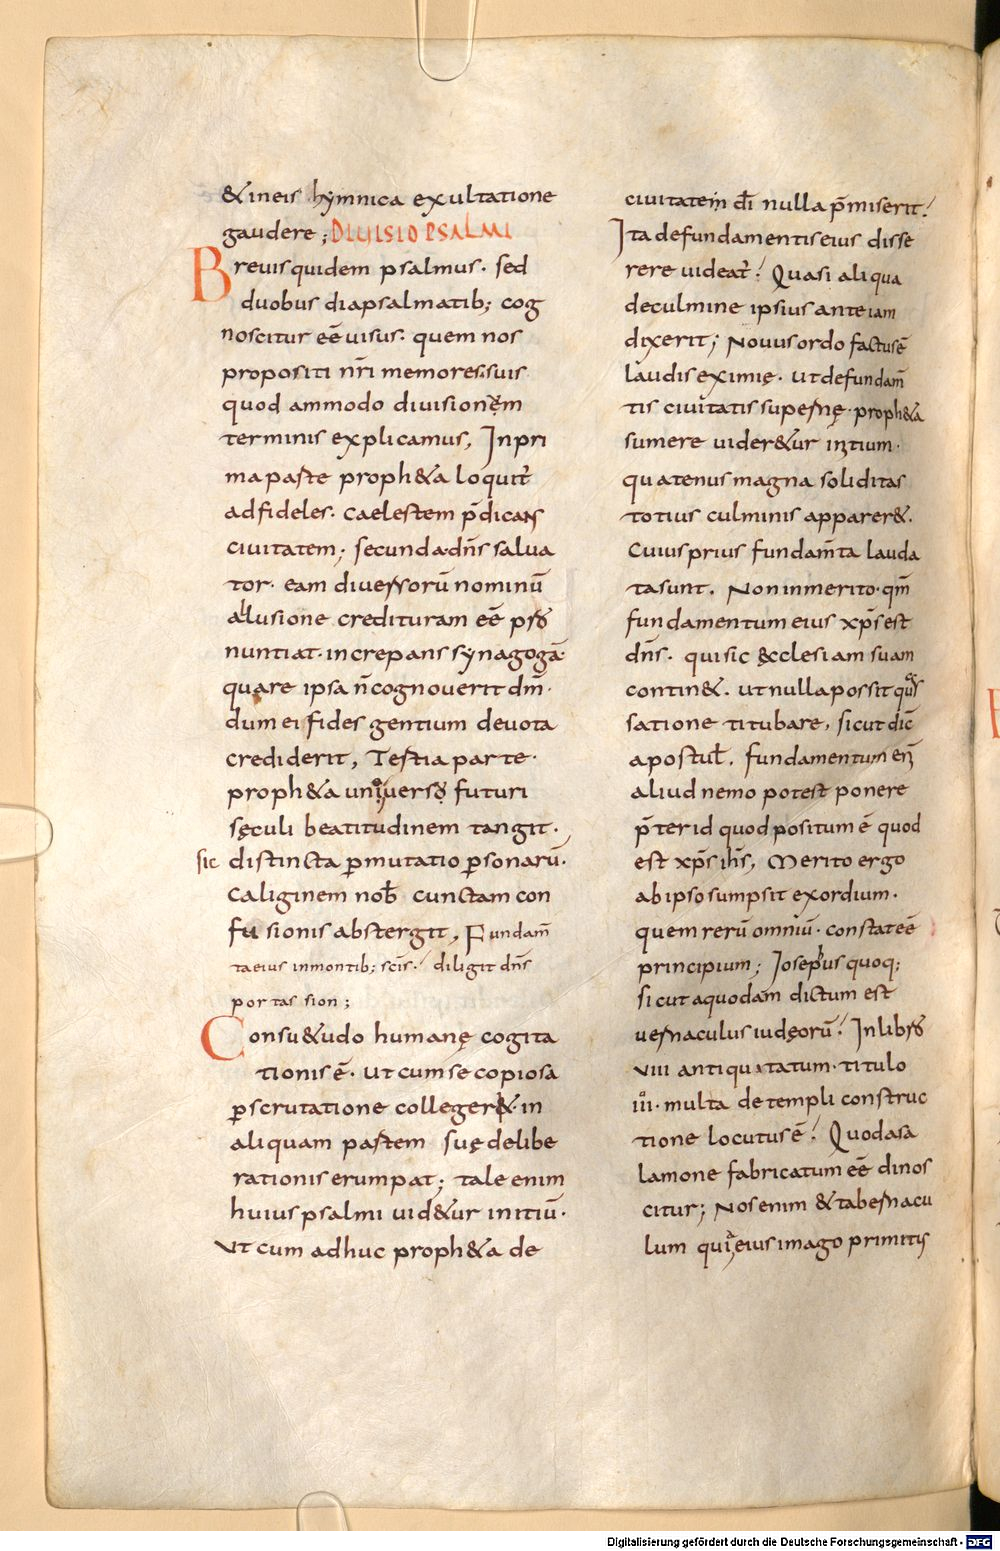 &ineis hymnica exultatione
gaudere; DIVISIO PSALMI
Breuis quidem psalmus· sed
duobus diapsalmatib; cog
noscitur eē uisus· quem nos
propositi nr̄i memores suis
quod ammodo divisionęm
terminis explicamus, Inpri
ma parte proph&a loquit̄
ad fideles· caelestem p̄dicans
ciuitatem; secunda dn̄s salua
tor· eam diuersorū nominū
allusione credituram eē psōs
nuntiat· increpans synagogā·
quare ipsa n̄ cognouerit dm̄·
dum ei fides gentium deuota
crediderit, Tertia parte·
proph&a uniuersę futuri
sęculi beatitudinem tangit·
sic distincta ꝑmutatio ꝑsonarū·
caliginem nob̄ cunctam con
fusionis abstergit, Fundam̄
ta eius in montib; sc̄is· diligit dn̄s
portas sion;
Consu&udo humanę cogita
tionis ē· ut cum se copiosa
ꝑscrutatione colleger&· in
aliquam partem suę delibe
rationis erumpat; tale enim
huius psalmi uid&ur initiū·
Ut cum adhuc proph&a de
ciuitatem dī nulla p̄miserit!
Ita de fundamentis eius disse
rere uideat̄! Quasi aliqua
de culmine ipsius ante iam
dixerit; Nouus ordo factus ē
laudis eximię· ut de fundam̄
tis ciuitatis supernę· proph&a
sumere uider&ur initium·
quatenus magna soliditas
totius culminis apparer&·
Cuius prius fundam̄ta lauda
ta sunt. Non inmerito· qm̄
fundamentum eius xp̄s est
dn̄s· qui sic ęcclesiam suam
contin&. ut nulla possit quas
satione titubare, sicut dic̄
apostul̄. fundamentum enī
aliud nemo potest ponere
p̄ter id quod positum ē quod
est xp̄s ihs̄, Merito ergo
ab ipso sumpsit exordium·
quem rerū omniū· constat eē
principium; Josephus quoq;
sicut a quodam dictum est
uernaculus iudęorū! In libros
VIII antiquitatum· titulo
IIIo· multa de templi construc
tione locutus ē! Quod a sa
lamone fabricatum eē dinos
citur; Nos enim & tabernacu
lum qui eius imago primitis
Digitalisierung gefördert durch die Deutsche Forschungsgemeinschaft - DFG